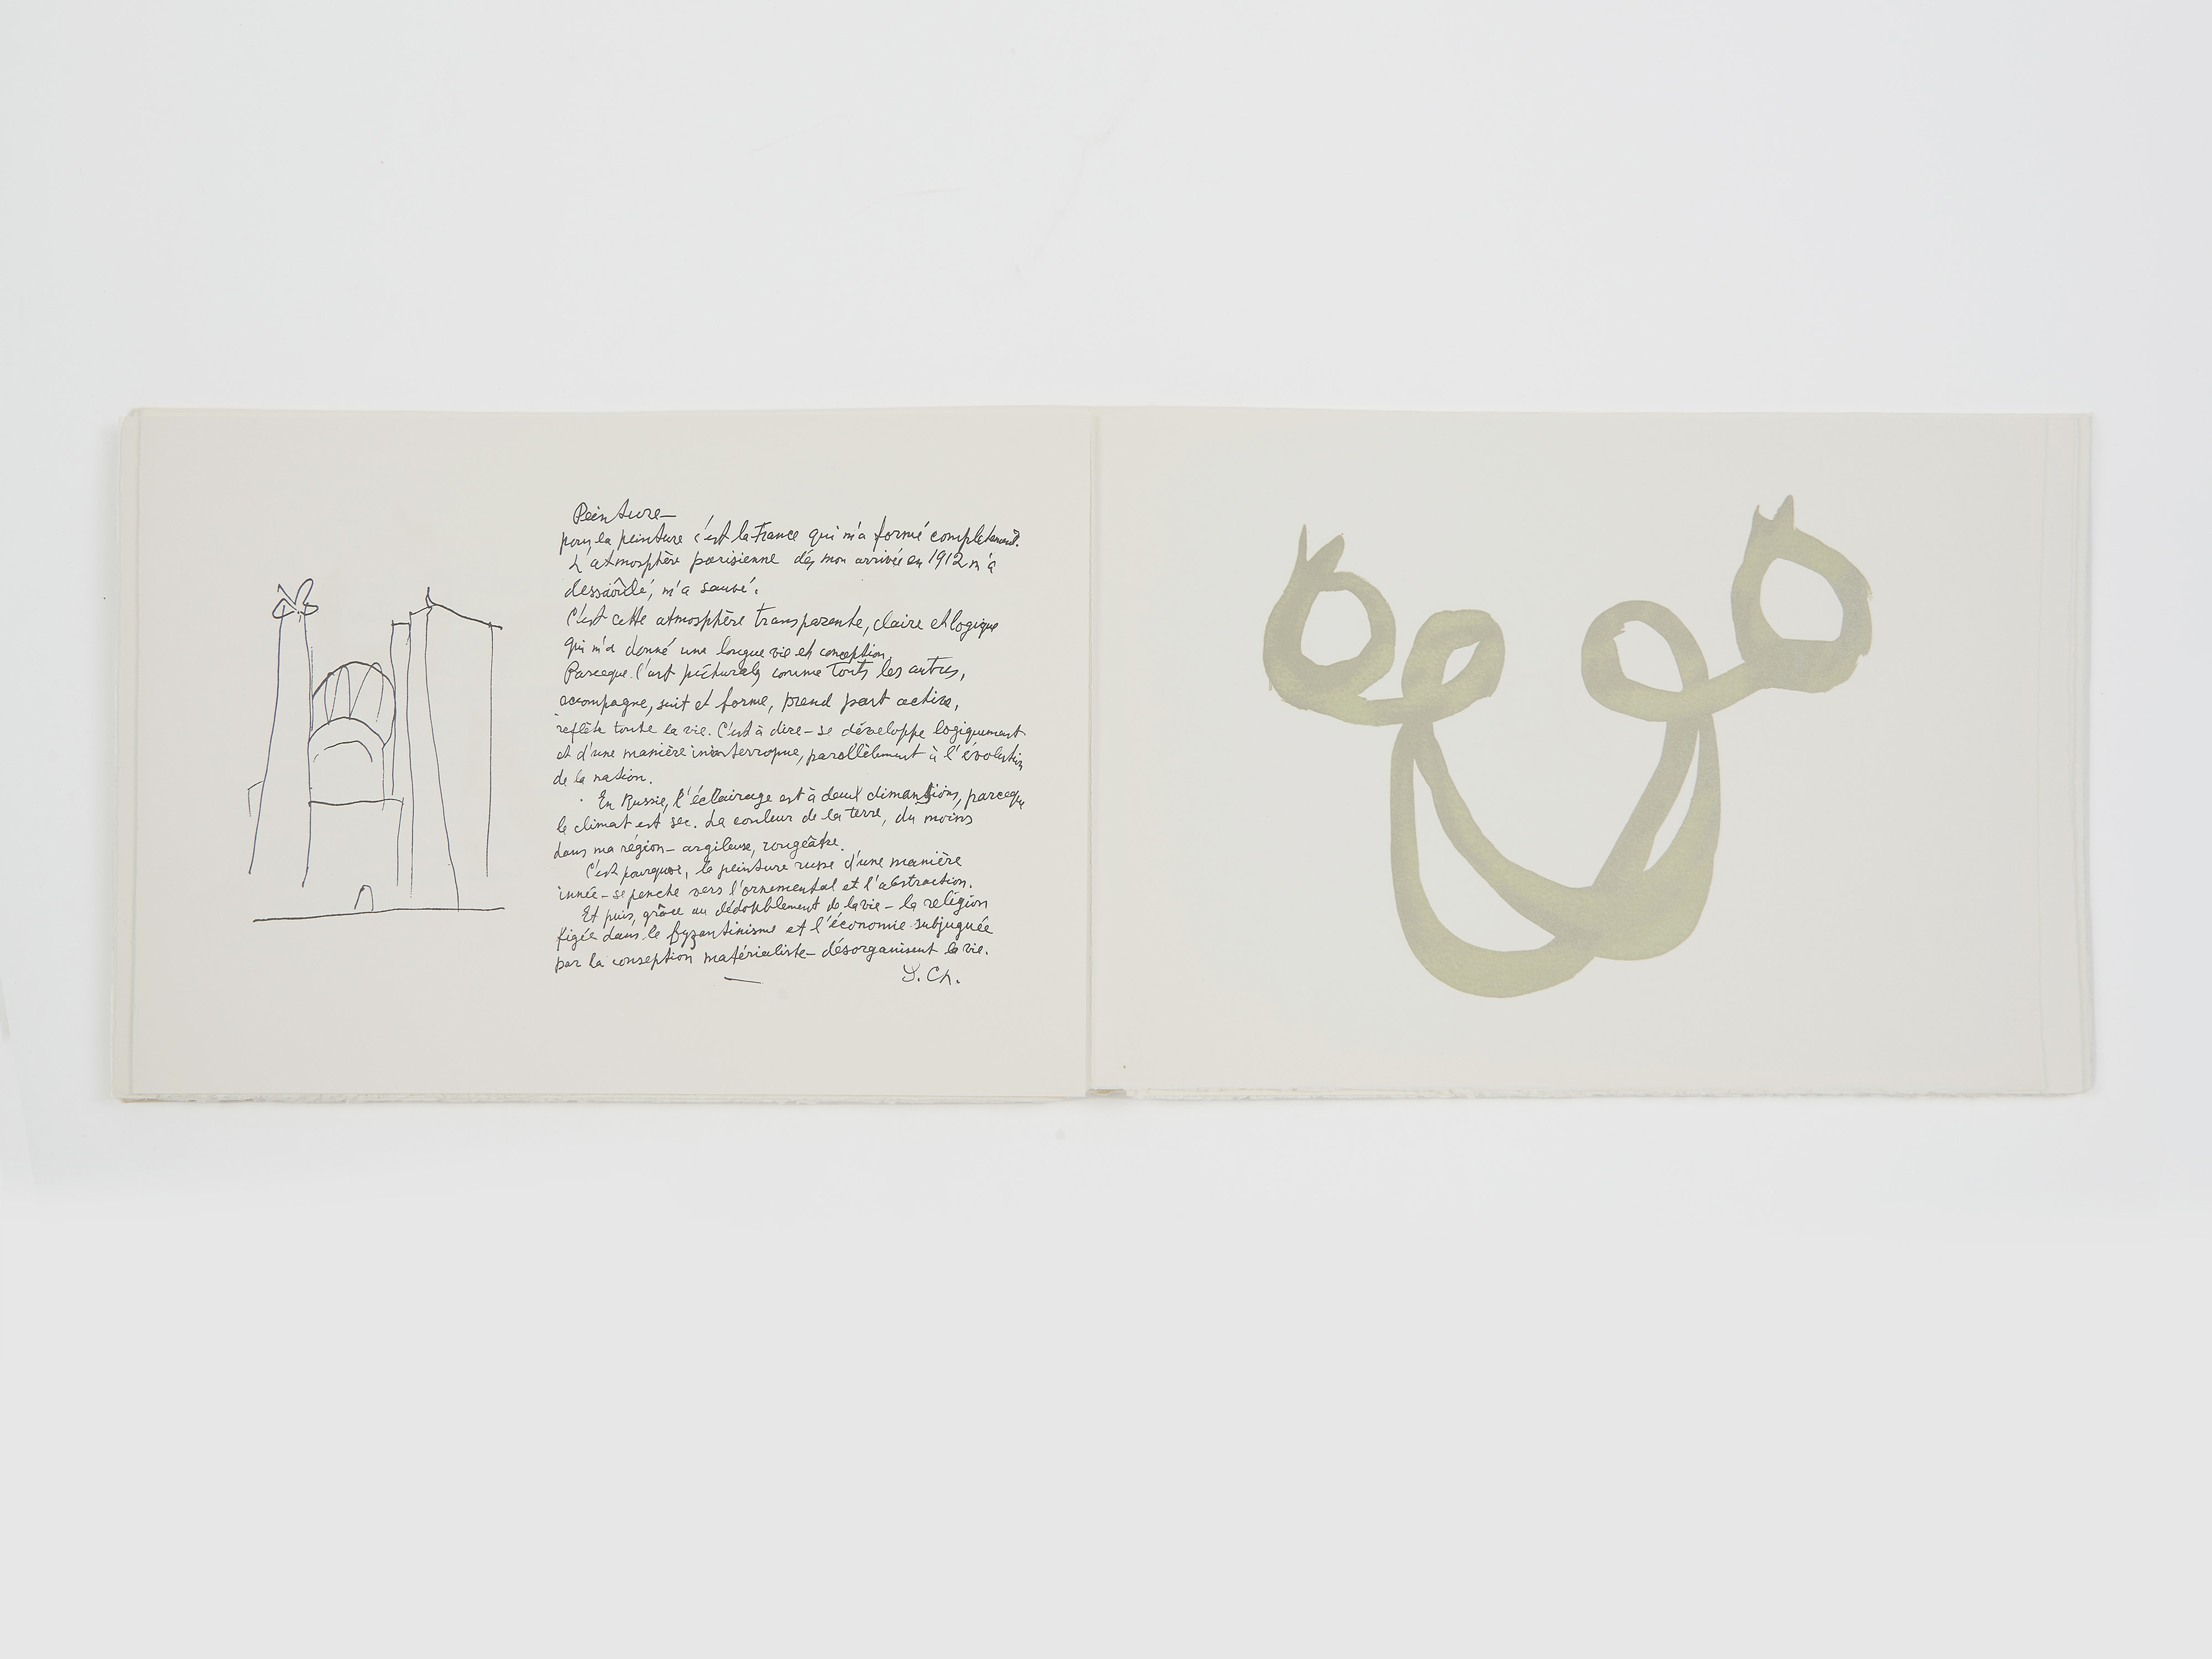 Peinture—
pour la peinture c'est la France qui m'a formé complètement.
L'atmosphère parisienne dès mon arrivée en 1912 m'a
dessaoûlé, m'a sauvé.
C'est cette atmosphère transparente, claire et logique
qui m'a donné une longue vie et conception.
Parceque l'art pictural, comme touts les autres,
accompagne, suit et forme, prend part active,
reflète toute la vie. C'est à dire - se développe logiquement
et d'une manière ininterropue, parallèlement à l'évolution
de la nation.
En Russie, l'éclairage est à deux dimantions, parceque
le climat est sec. La couleur de la terre, du moins
dans ma région - argileuse, rougeâtre.
C'est pourquoi, la peinture russe d'une manière
innée - se penche vers l'ornemental et l'abstraction.
Et puis, grâce au dédoublement de la vie - la religion
figée dans le byzantinisme et l'économie subjuguée
par la conseption matérialiste - désorganisent la vie.
S. Ch.